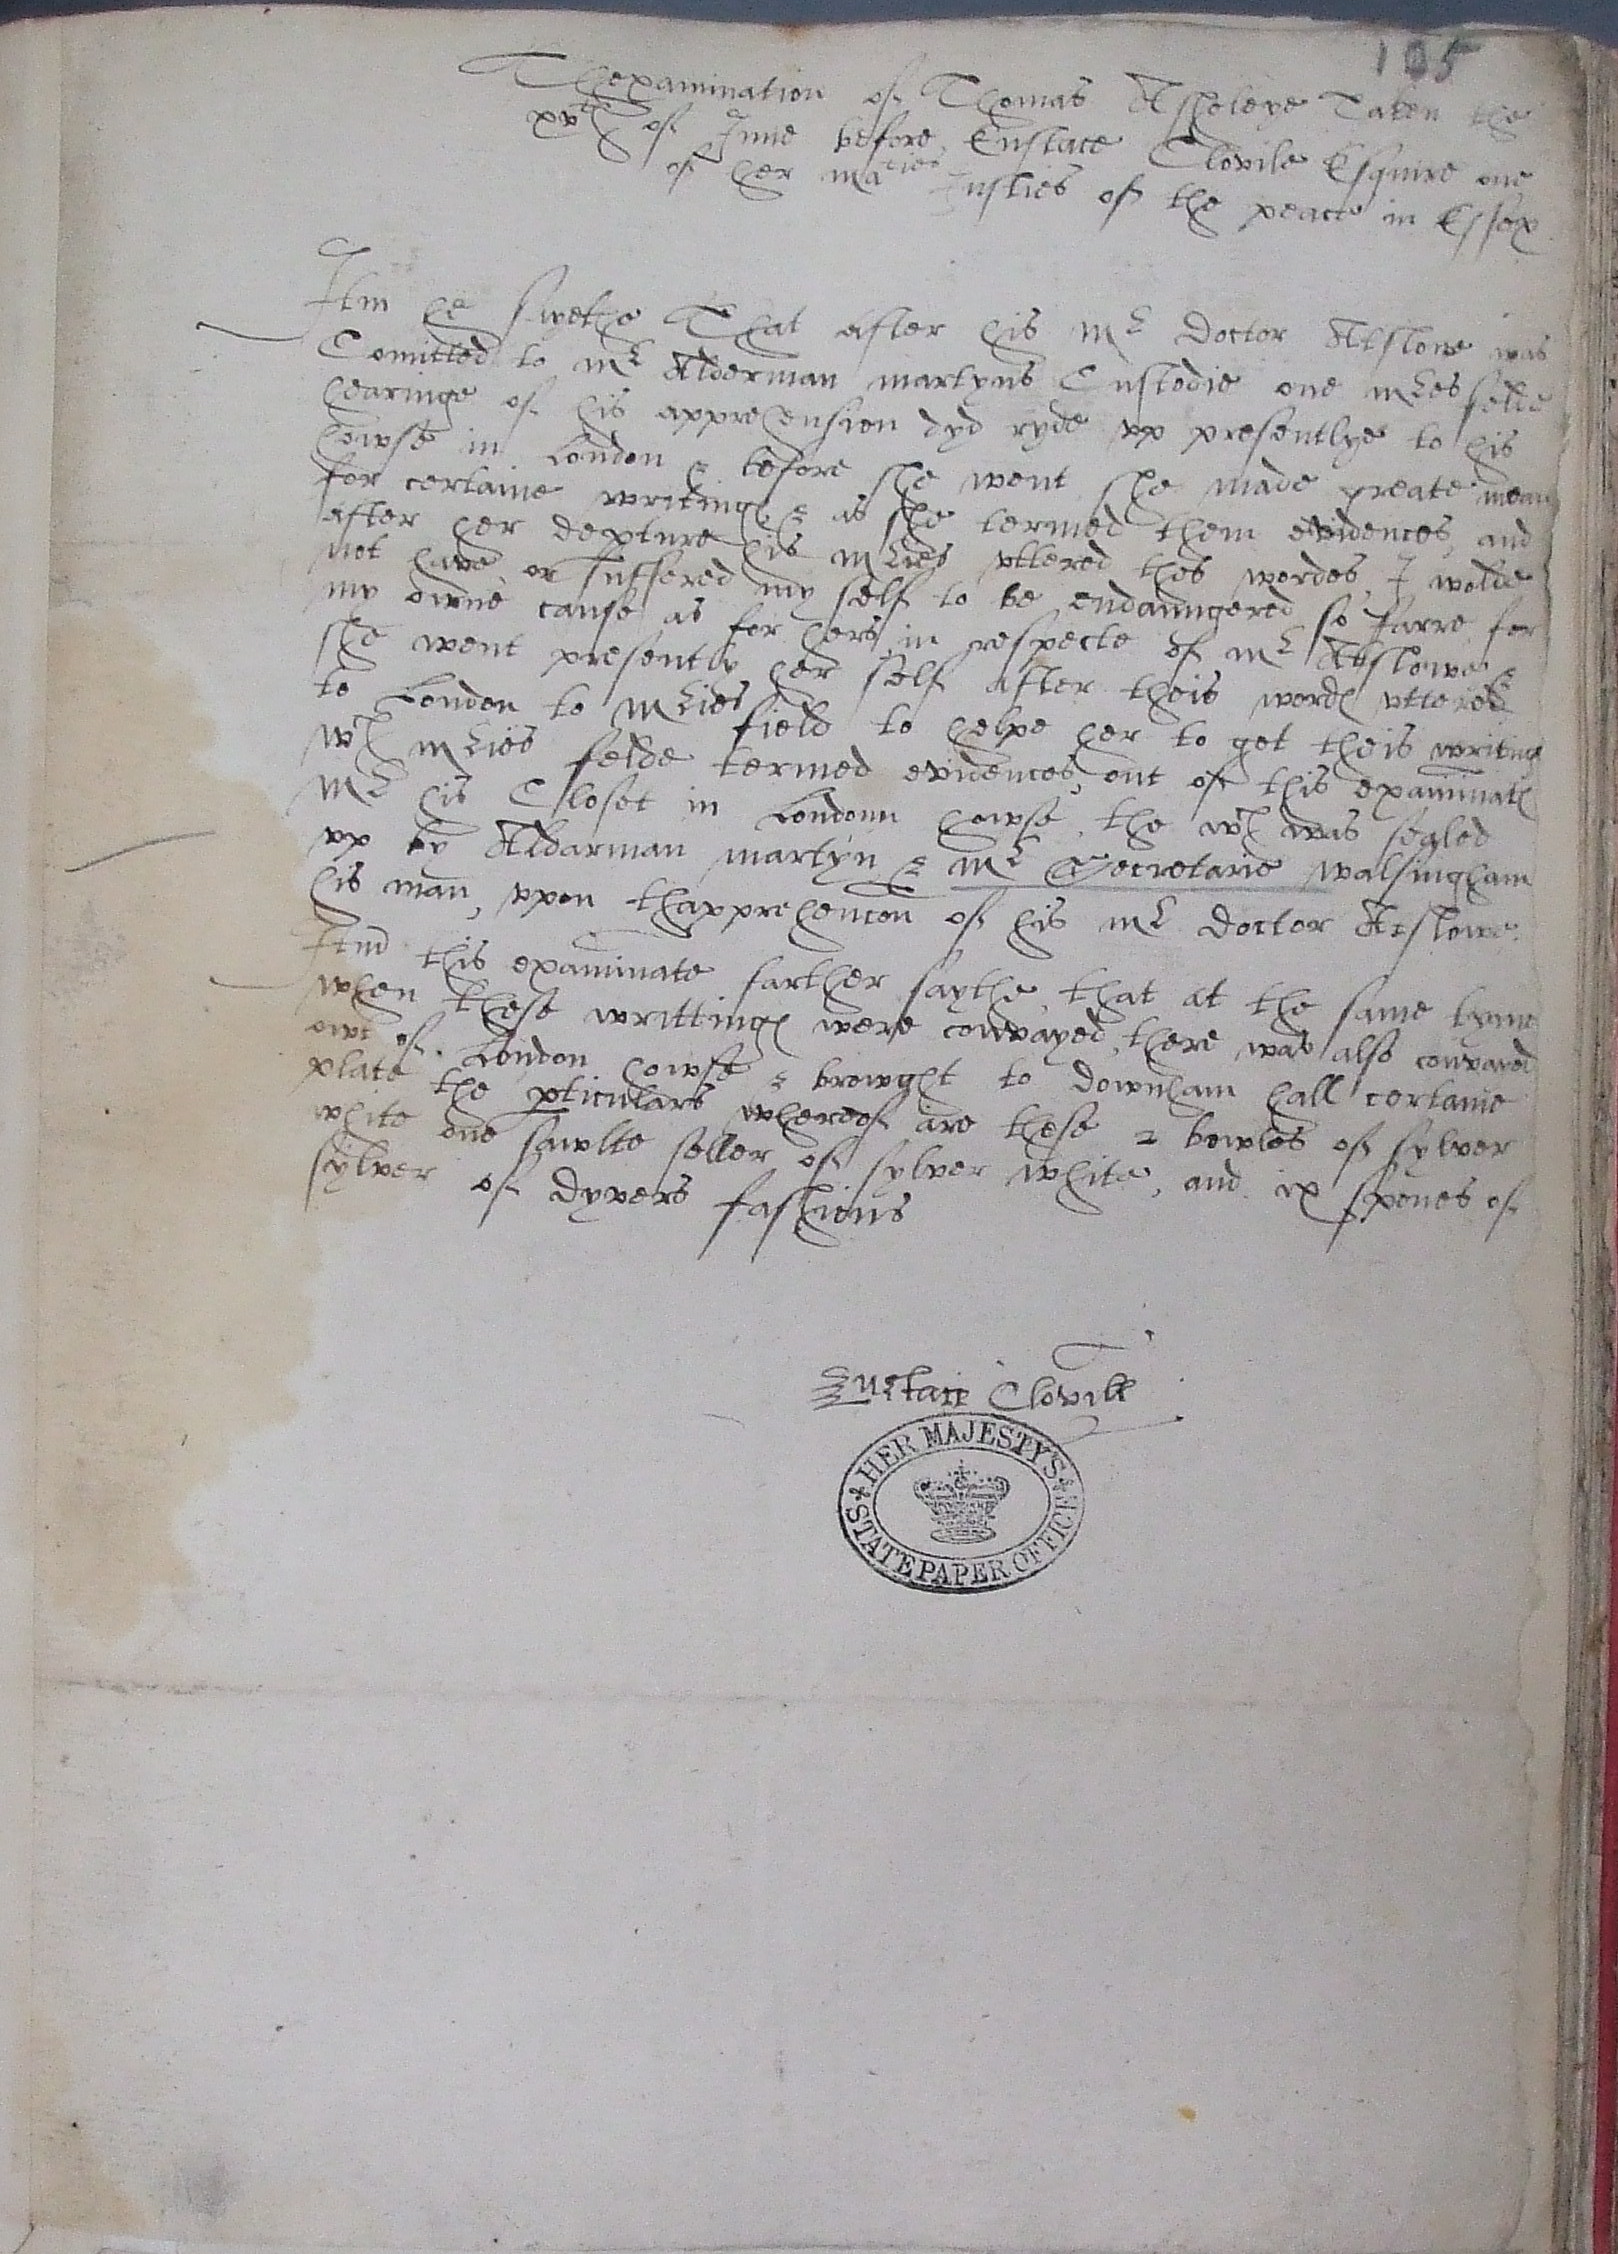 105
Thexamination of Thomas Assheleye Taken the
xvth of June before Eustace Clovile Esquire one
of her maties Justics of the peace in Essex
Itm he sayethe That after his Mr Doctor Atslowe was
Comitted to Mr Alderman martyns Custodie one Mres felde
hearinge of his apprehension dyd ryde vp presentlye to his
howse in London & before she went she made greate mean
for certaine writings & as she termed them evidences, and
after her depture his Mries vttered thes wordes, I wolde
not have or suffered my self to be endaungered so farre for
my owne cause as for hers, in respecte of Mr Atslowe &
she went presently her self after theis words vttered
to London to Mries field to helpe her to get theis writings
wch Mries felde termed evidences, out of this examinats
Mr his Closet in Londonn howse, the wch was sealed
vp by Aldarman martyn & Mr Secretarie walsingham
his man, vpon thapprehencon of his Mr Doctor Atslowe.
Itm this examinate farther saythe, that at the same tyme
when these writtings were convayed, there was also convaied
owt of London howse & browght to Downham hall certaine
plate the pticulars whereof are these 2 bowles of sylver
white one sawlte seller of sylver white, and ix spones of
sylver of dyvers fashions
Eustace Clovill
HER MAJESTY'S
STATE PAPER OFFICE